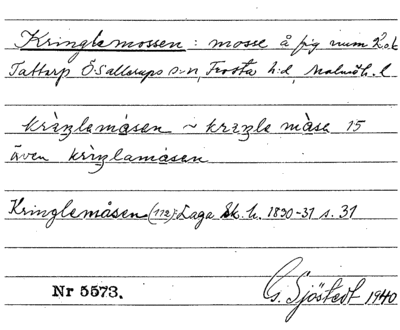 Kringlemossen : mosse å fig num 2 o. 6
Tattarp Ö. Sallerups s:n, Frosta h:d, Malmöh. l
krìŋlemåsen ~ krìŋle måse 15
även krìŋlamåsen
Kringlemåsen (112): Laga Sk. h. 1830-31 s. 31
Nr 5573.
G. Sjöstedt 1940